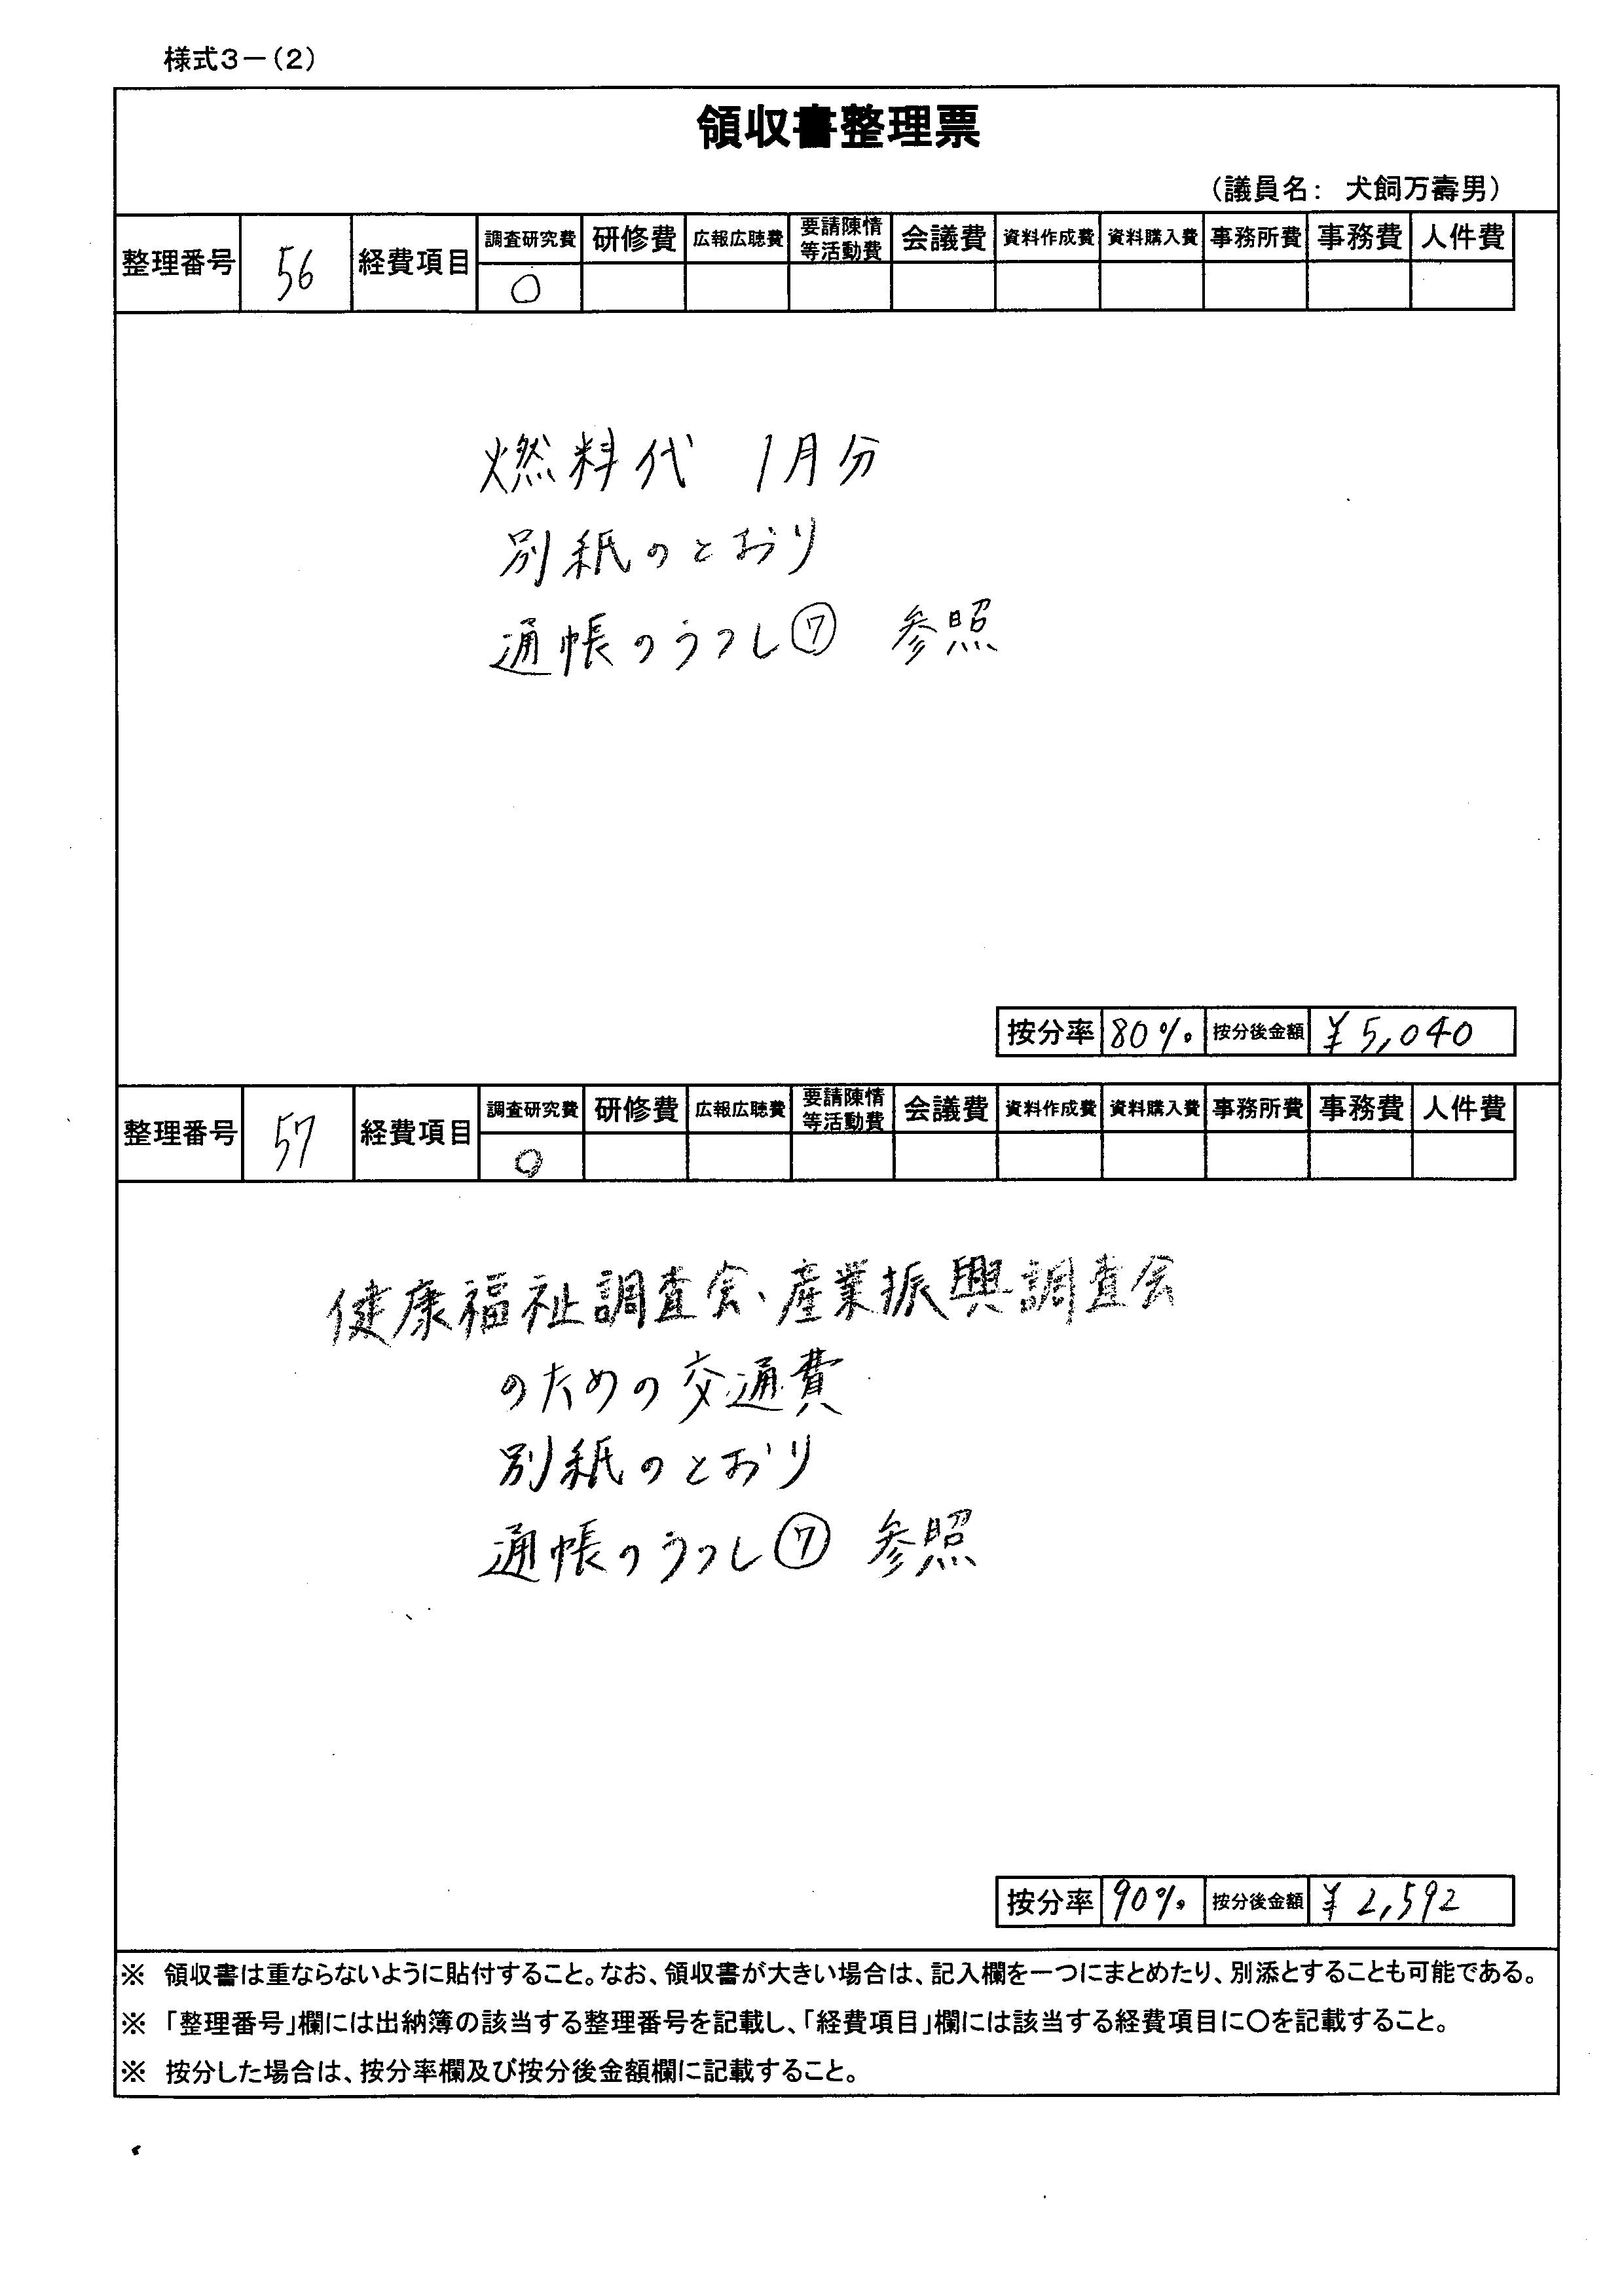 様式3－(2)
領収書整理票
(議員名： 犬飼万壽男)
整理番号 56 経費項目 調査研究費 研修費 広報広聴費 要請陳情等活動費 会議費 資料作成費 資料購入費 事務所費 事務費 人件費
○
燃料代 1月分
別紙のとおり
通帳のうつし⑦ 参照
按分率 80% 按分後金額 ¥5,040
整理番号 57 経費項目 調査研究費 研修費 広報広聴費 要請陳情等活動費 会議費 資料作成費 資料購入費 事務所費 事務費 人件費
○
健康福祉調査会、産業振興調査会
のための交通費
別紙のとおり
通帳のうつし⑦ 参照
按分率 90% 按分後金額 ¥2,592
※ 領収書は重ならないように貼付すること。なお、領収書が大きい場合は、記入欄を一つにまとめたり、別添とすることも可能である。
※ 「整理番号」欄には出納簿の該当する整理番号を記載し、「経費項目」欄には該当する経費項目に○を記載すること。
※ 按分した場合は、按分率欄及び按分後金額欄に記載すること。